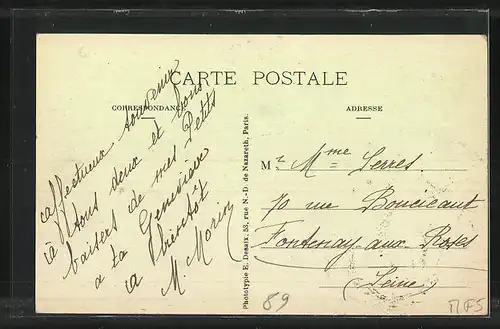 CARTE POSTALE
CORRESPONDANCE
ADRESSE
affectueux souvenir
à tous deux et bons
baisers de mes Petits
a ta Geneviève
a bientôt
M. Morin
Phototypie E. Desaix, 53, rue N.-D. de Nazareth, Paris.
Mr Mme Serres
70 rue Boucicaut
Fontenay aux Roses
(Seine)
89